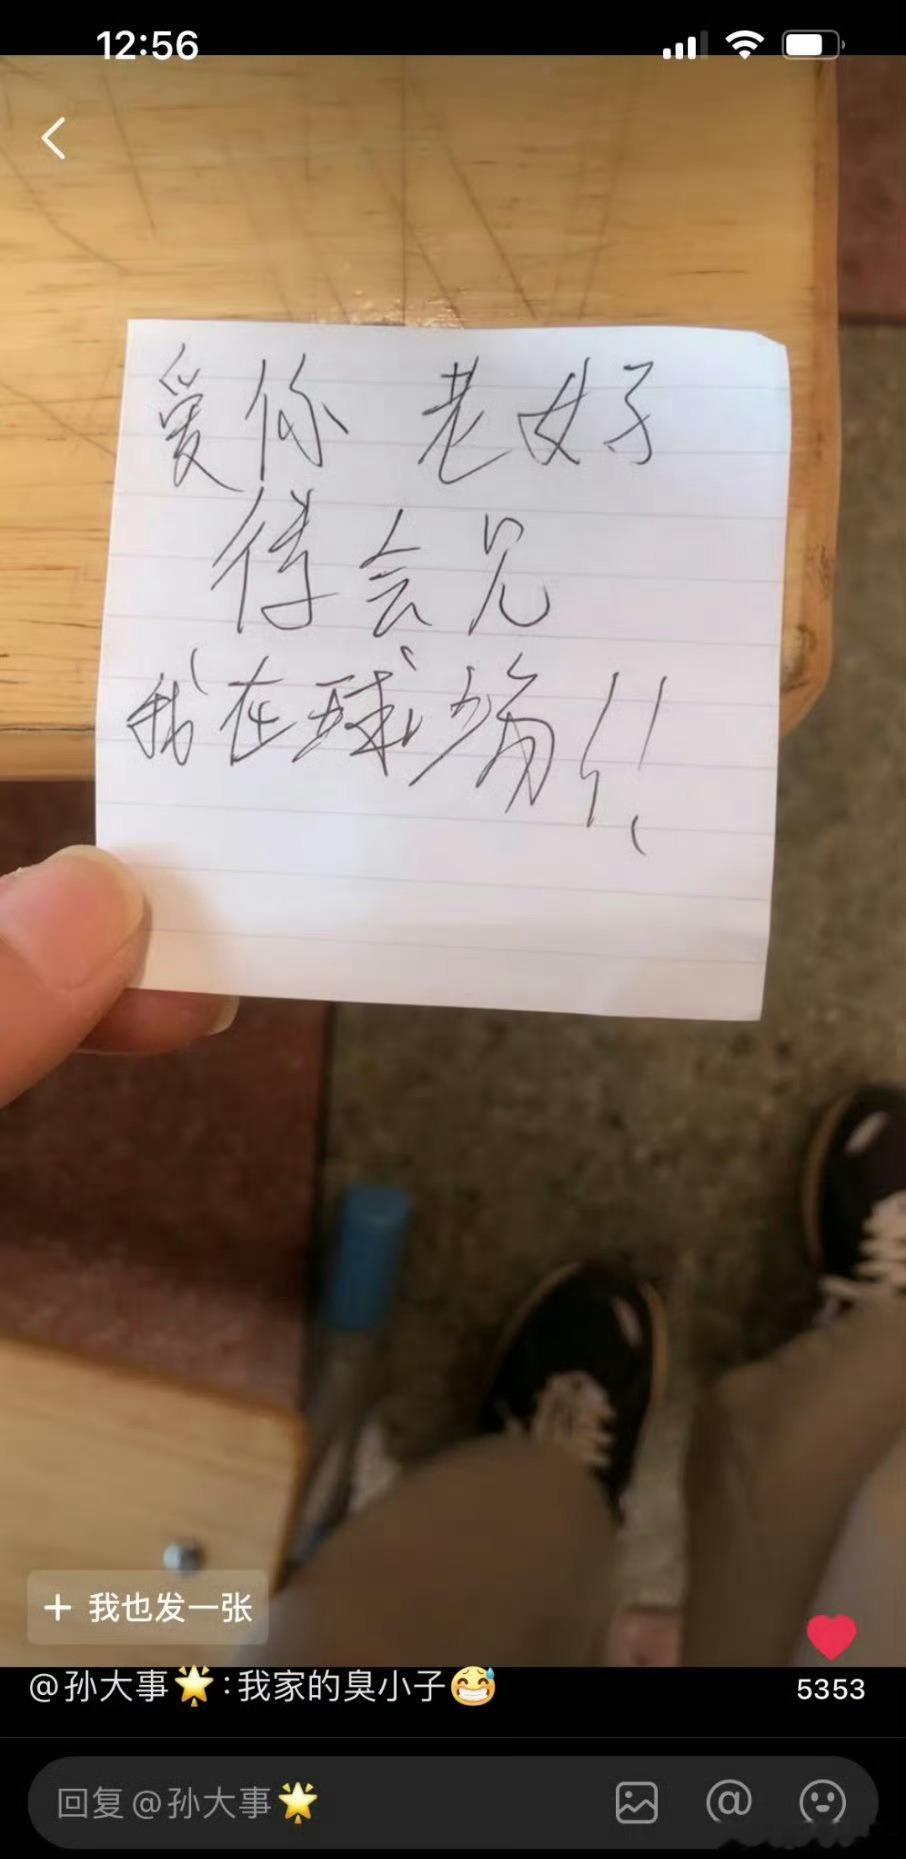 12:56
爱你 老好
待会见
我在球场!!
+ 我也发一张
@孙大事🌟:我家的臭小子😅
5353
回复@孙大事🌟